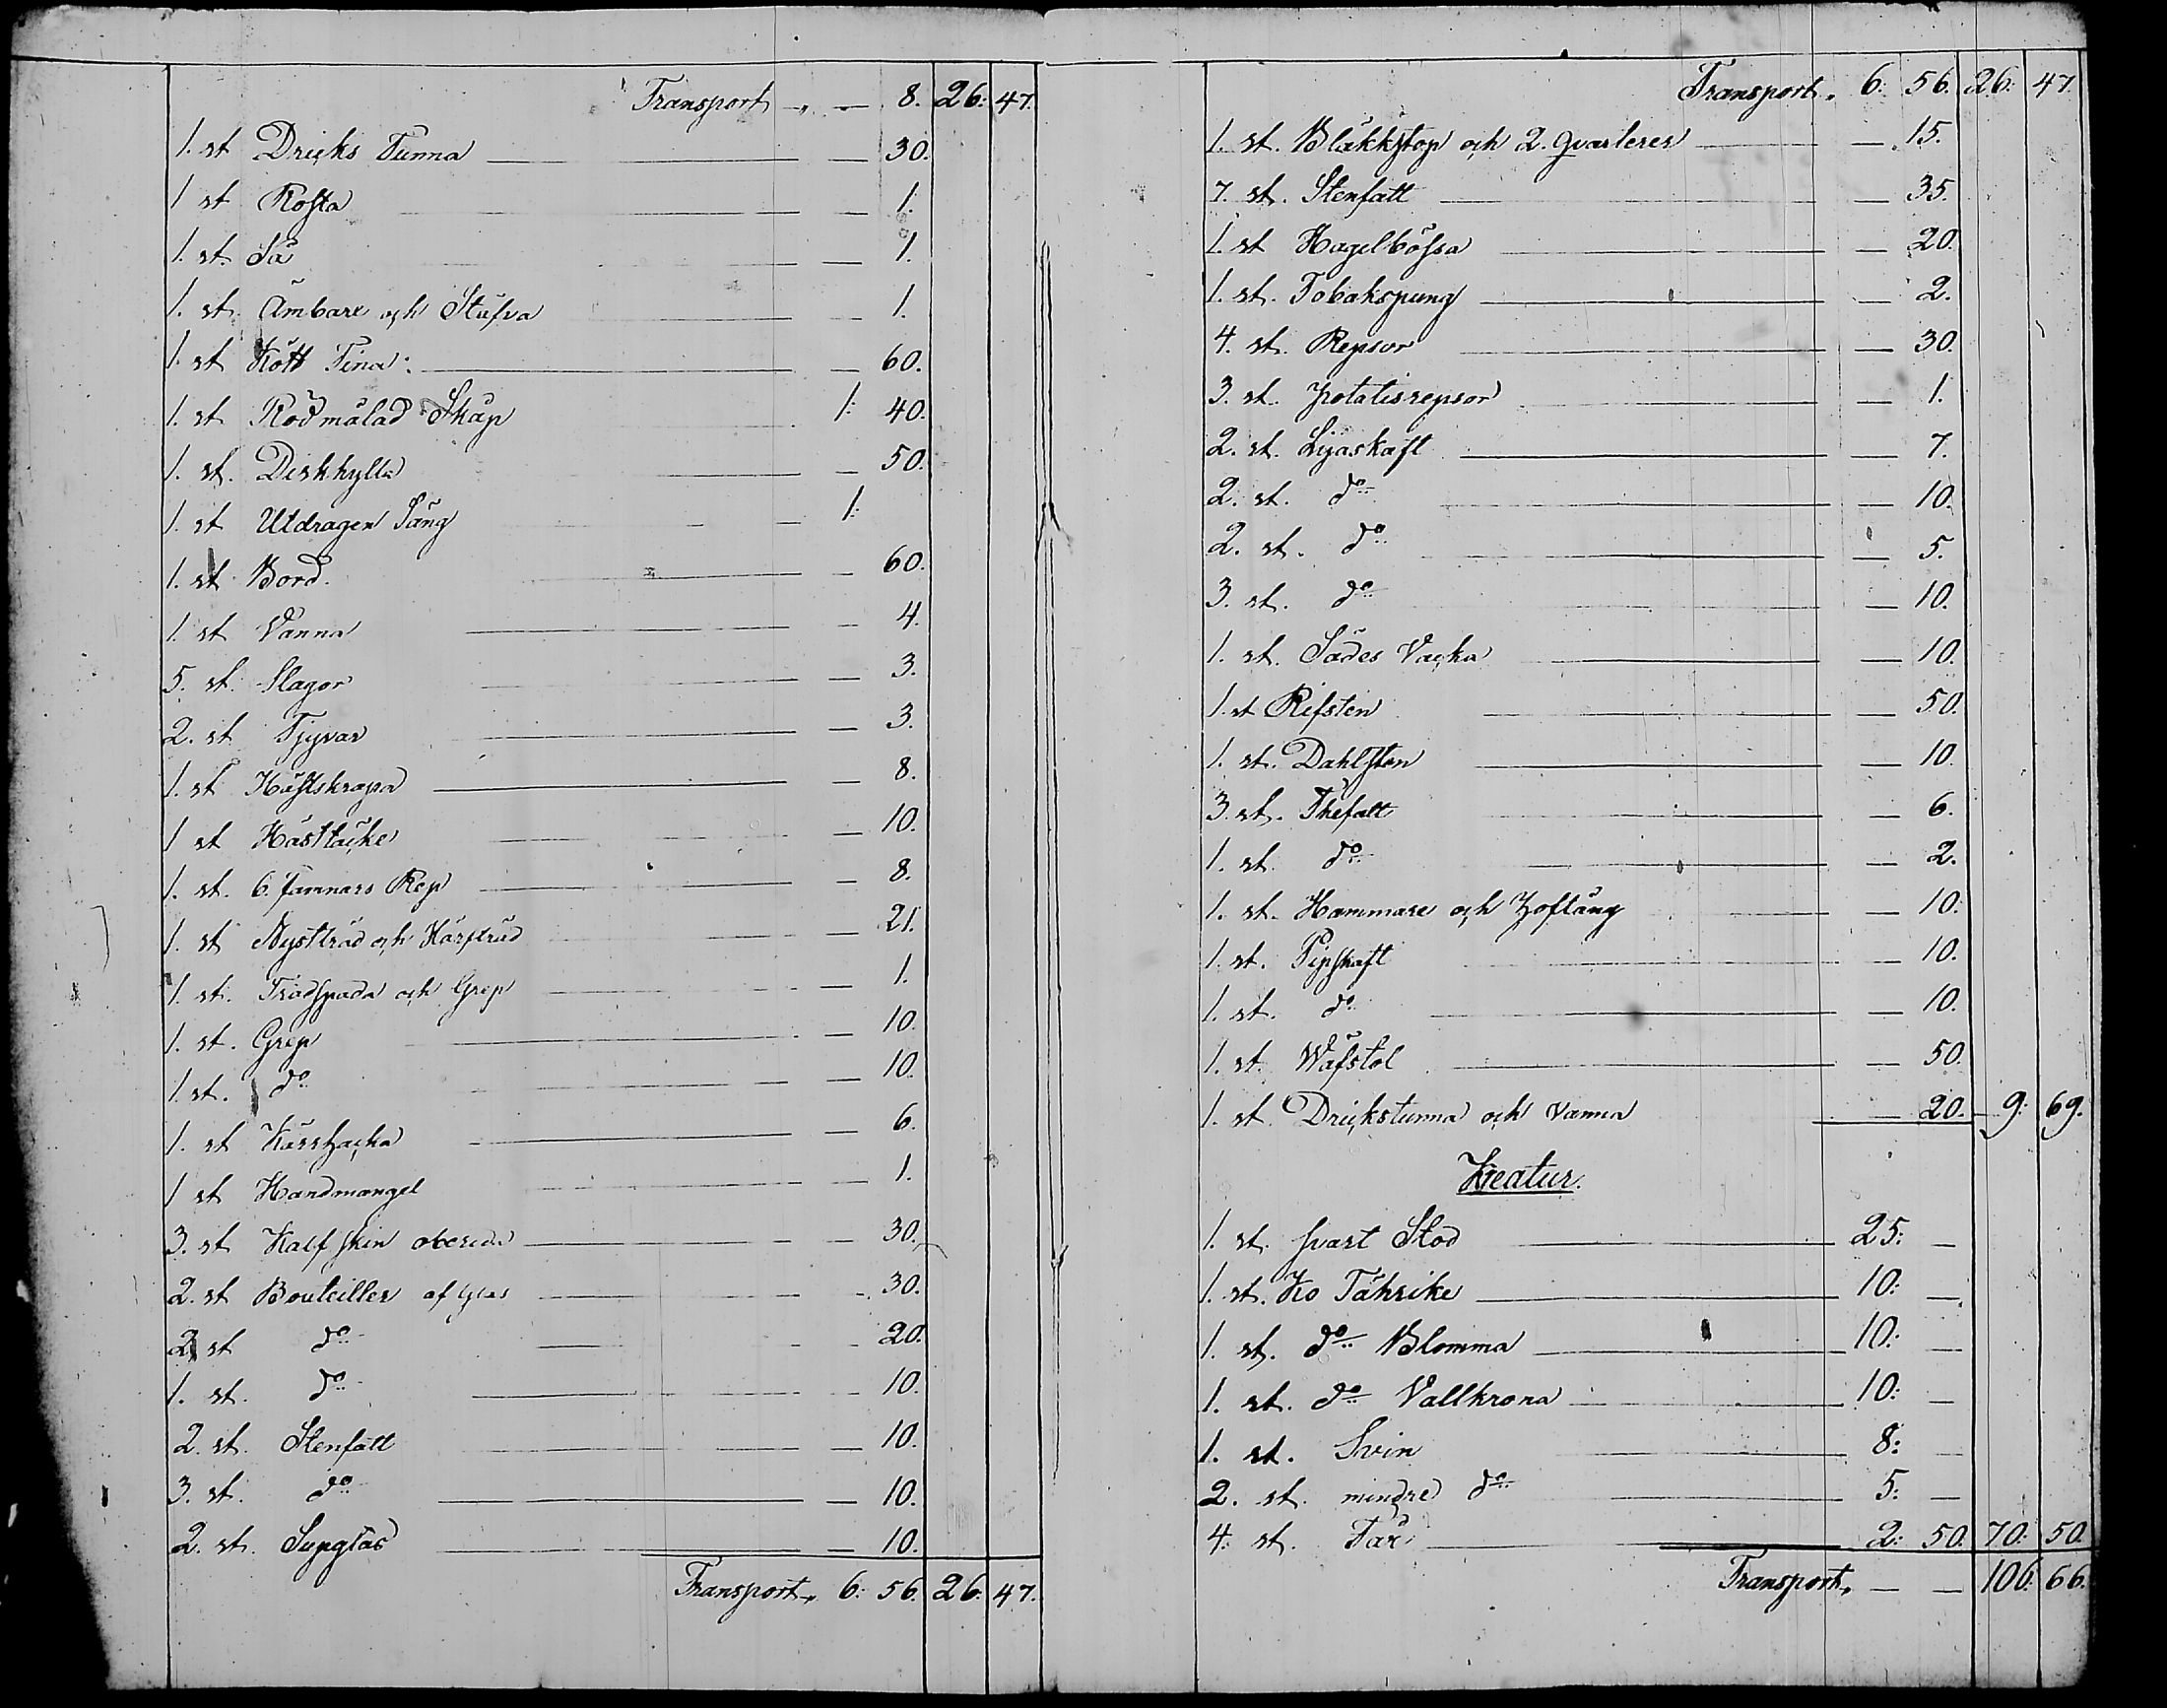 Transport „ — 8. 26: 47.
1. st Dricks Tunna — 30.
1 st Rosta — 1.
1. st. Så — 1.
1. st. Ämbare och Stäfva — 1.
1. st Kött Tina: — 60.
1. st Rödmålad Skåp 1: 40.
1. st. Diskhylla — 50.
1. st Utdragen Säng — 1:
1. st Bord. — 60.
1. st Vanna — 4.
5. st. Slagor — 3.
2. st Tjyvar — 3.
1. st Hästskrapa — 8.
1 st Hästtäcke — 10.
1. st. 6. famnars Rep — 8.
1. st Nystträd och Härfträd — 21.
1. st. Trädspada och Grep — 1.
1. st. Grep — 10.
1 st. do — 10.
1. st Kärrhacka — 6.
1 st Handmangel — 1.
3. st Kalfskin oberedd — 30.
2. st Bouteiller af Glas — 30.
2 st do — 20.
1. st. do — 10.
2. st. Stenfatt — 10.
3. st. do — 10.
2. st. Supglas — 10.
Transport „ 6: 56. 26: 47.
Transport „ 6: 56. 26: 47.
1. st. Bläckstop och 2. qvarterer — 15.
7. st. Stenfatt — 35.
1. st Hagelbössa — 20.
1. st. Tobakspung — 2.
4. st. Repsor — 30.
3. st. potatisrepsor — 1.
2. st. Lijaskaft — 7.
2. st. do — 10.
2. st. do — 5.
3. st. do — 10.
1. st. Sädes Vacka — 10.
1 st Rifsten — 50.
1. st. Dahlsten — 10.
3. st. Thefatt — 6.
1. st. do — 2.
1. st. Hammare och Hoftång — 10.
1. st. Pipskaft — 10.
1. st. do — 10.
1. st. Wäfstol — 50.
1. st. Drickstunna och vanna — 20. 9: 69.
Kreatur.
1. st. svart Stod — 25: —
1. st. Ko Tährike — 10: —
1. st. do Blomma — 10: —
1. st. do Vallkrona — 10: —
1. st. Svin — 8: —
2. st. mindre do — 5: —
4. st. Får — 2: 50. 70: 50.
Transport „ — — 106: 66.